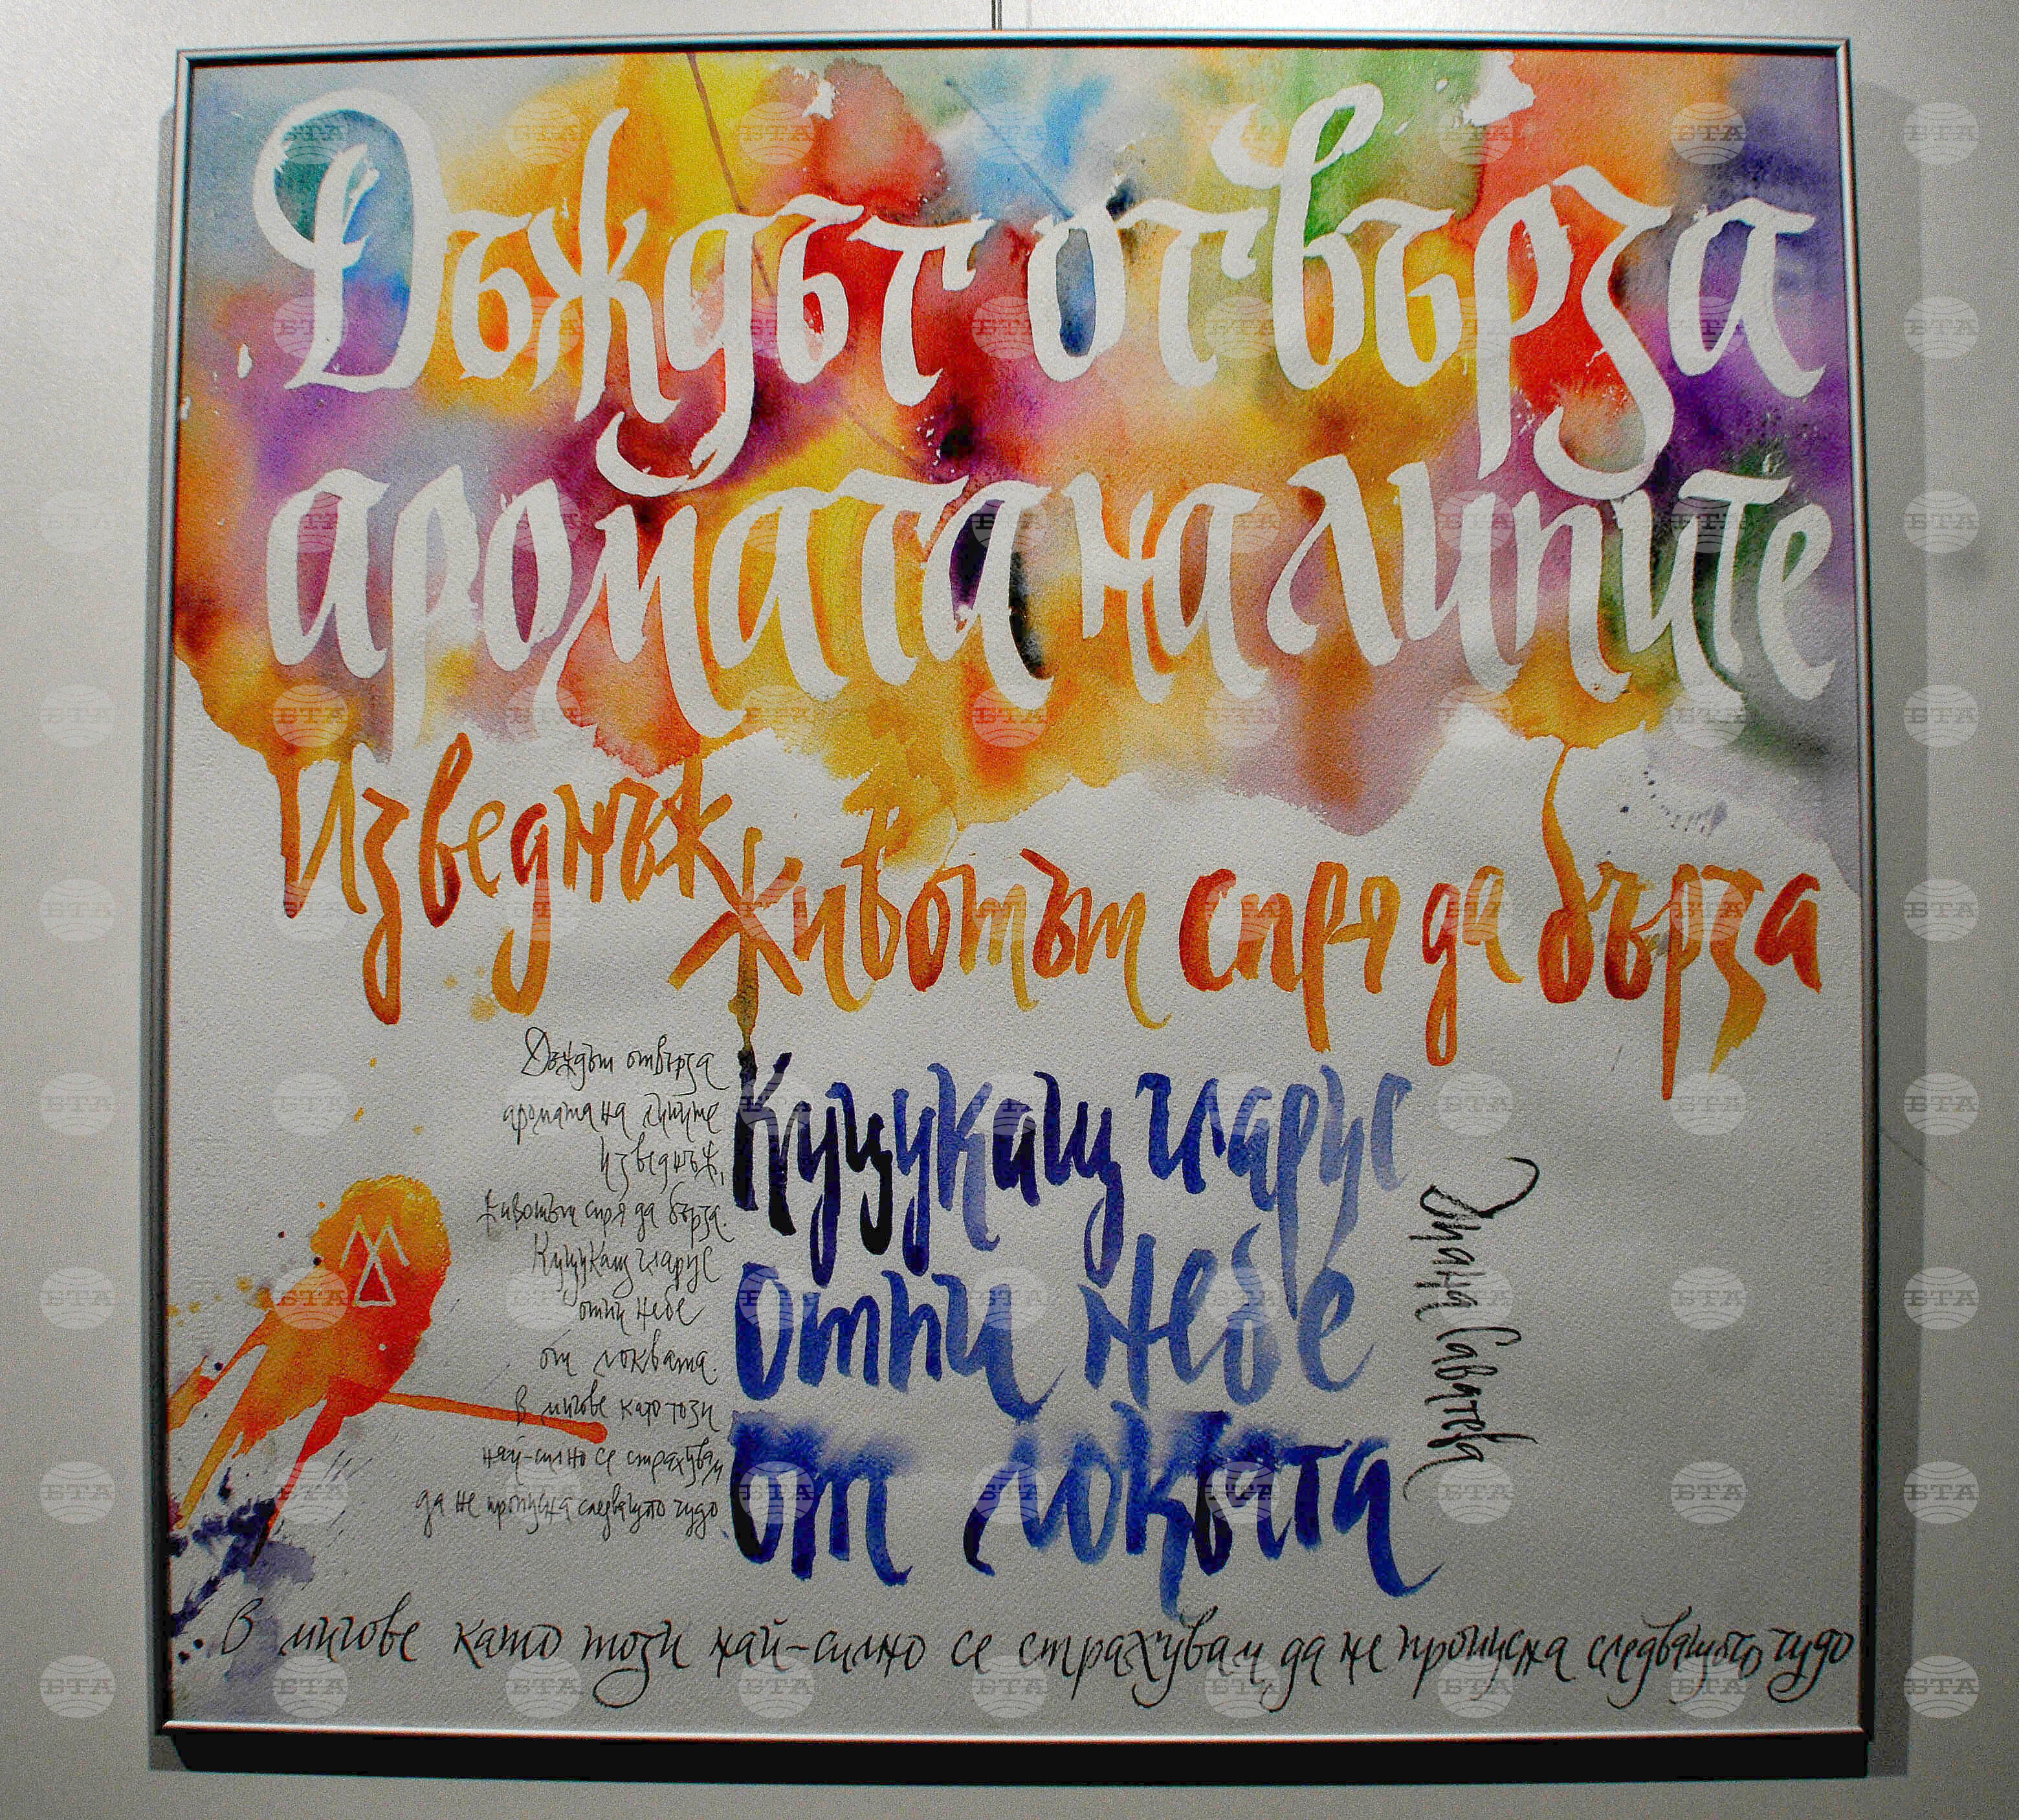 Дъждът отвърза
аромата на липите
Изведнъж
животът спря да бърза
Дъждът отвърза
аромата на липите
Изведнъж,
животът спря да бърза.
Куцукащ гларус
отпи небе
от локвата.
В мигове като този
най-силно се страхувам
да не пропусна следващото чудо
Куцукащ гларус
отпи небе
от локвата
Саватева
В мигове като този най-силно се страхувам да не пропусна следващото чудо
БТА